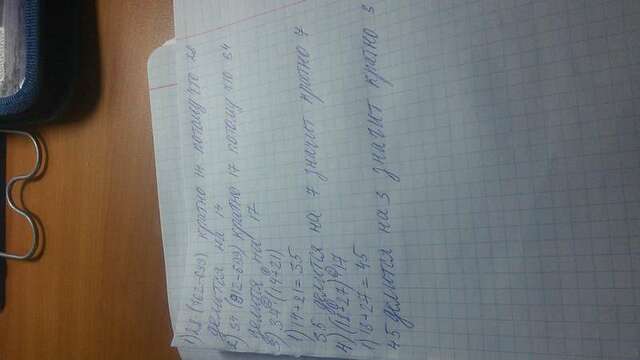 1) 28 (762-699) кратно 14 потому что 28
делится на 14
2) 34 (812-699) кратно 17 потому что 34
делится на 17
3) 37 (14+21)
1) 14+21=35
35 делится на 7 значит кратно 7
4) (18+27) 17
1) 18+27=45
45 делится на 3 значит кратно 3